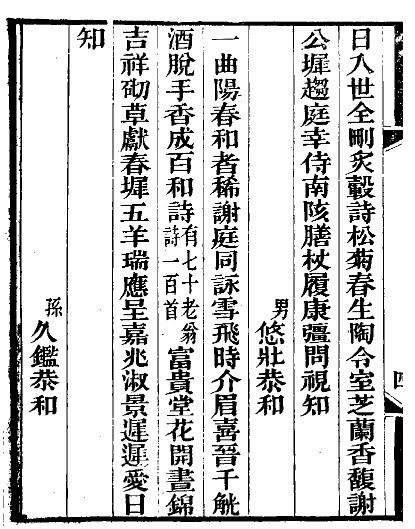 日入世全刪炙轂詩松菊春生陶令室芝蘭香馥謝
公墀趨庭幸侍南陔膳杖履康彊問視知
男悠壯恭和
一曲陽春和者稀謝庭同詠雪飛時介眉喜晉千觥
酒脫手香成百和詩有七十老翁詩一百首富貴堂花開晝錦
吉祥砌草獻春墀五羊瑞應呈嘉兆淑景遲遲愛日
知
孫久鑑恭和